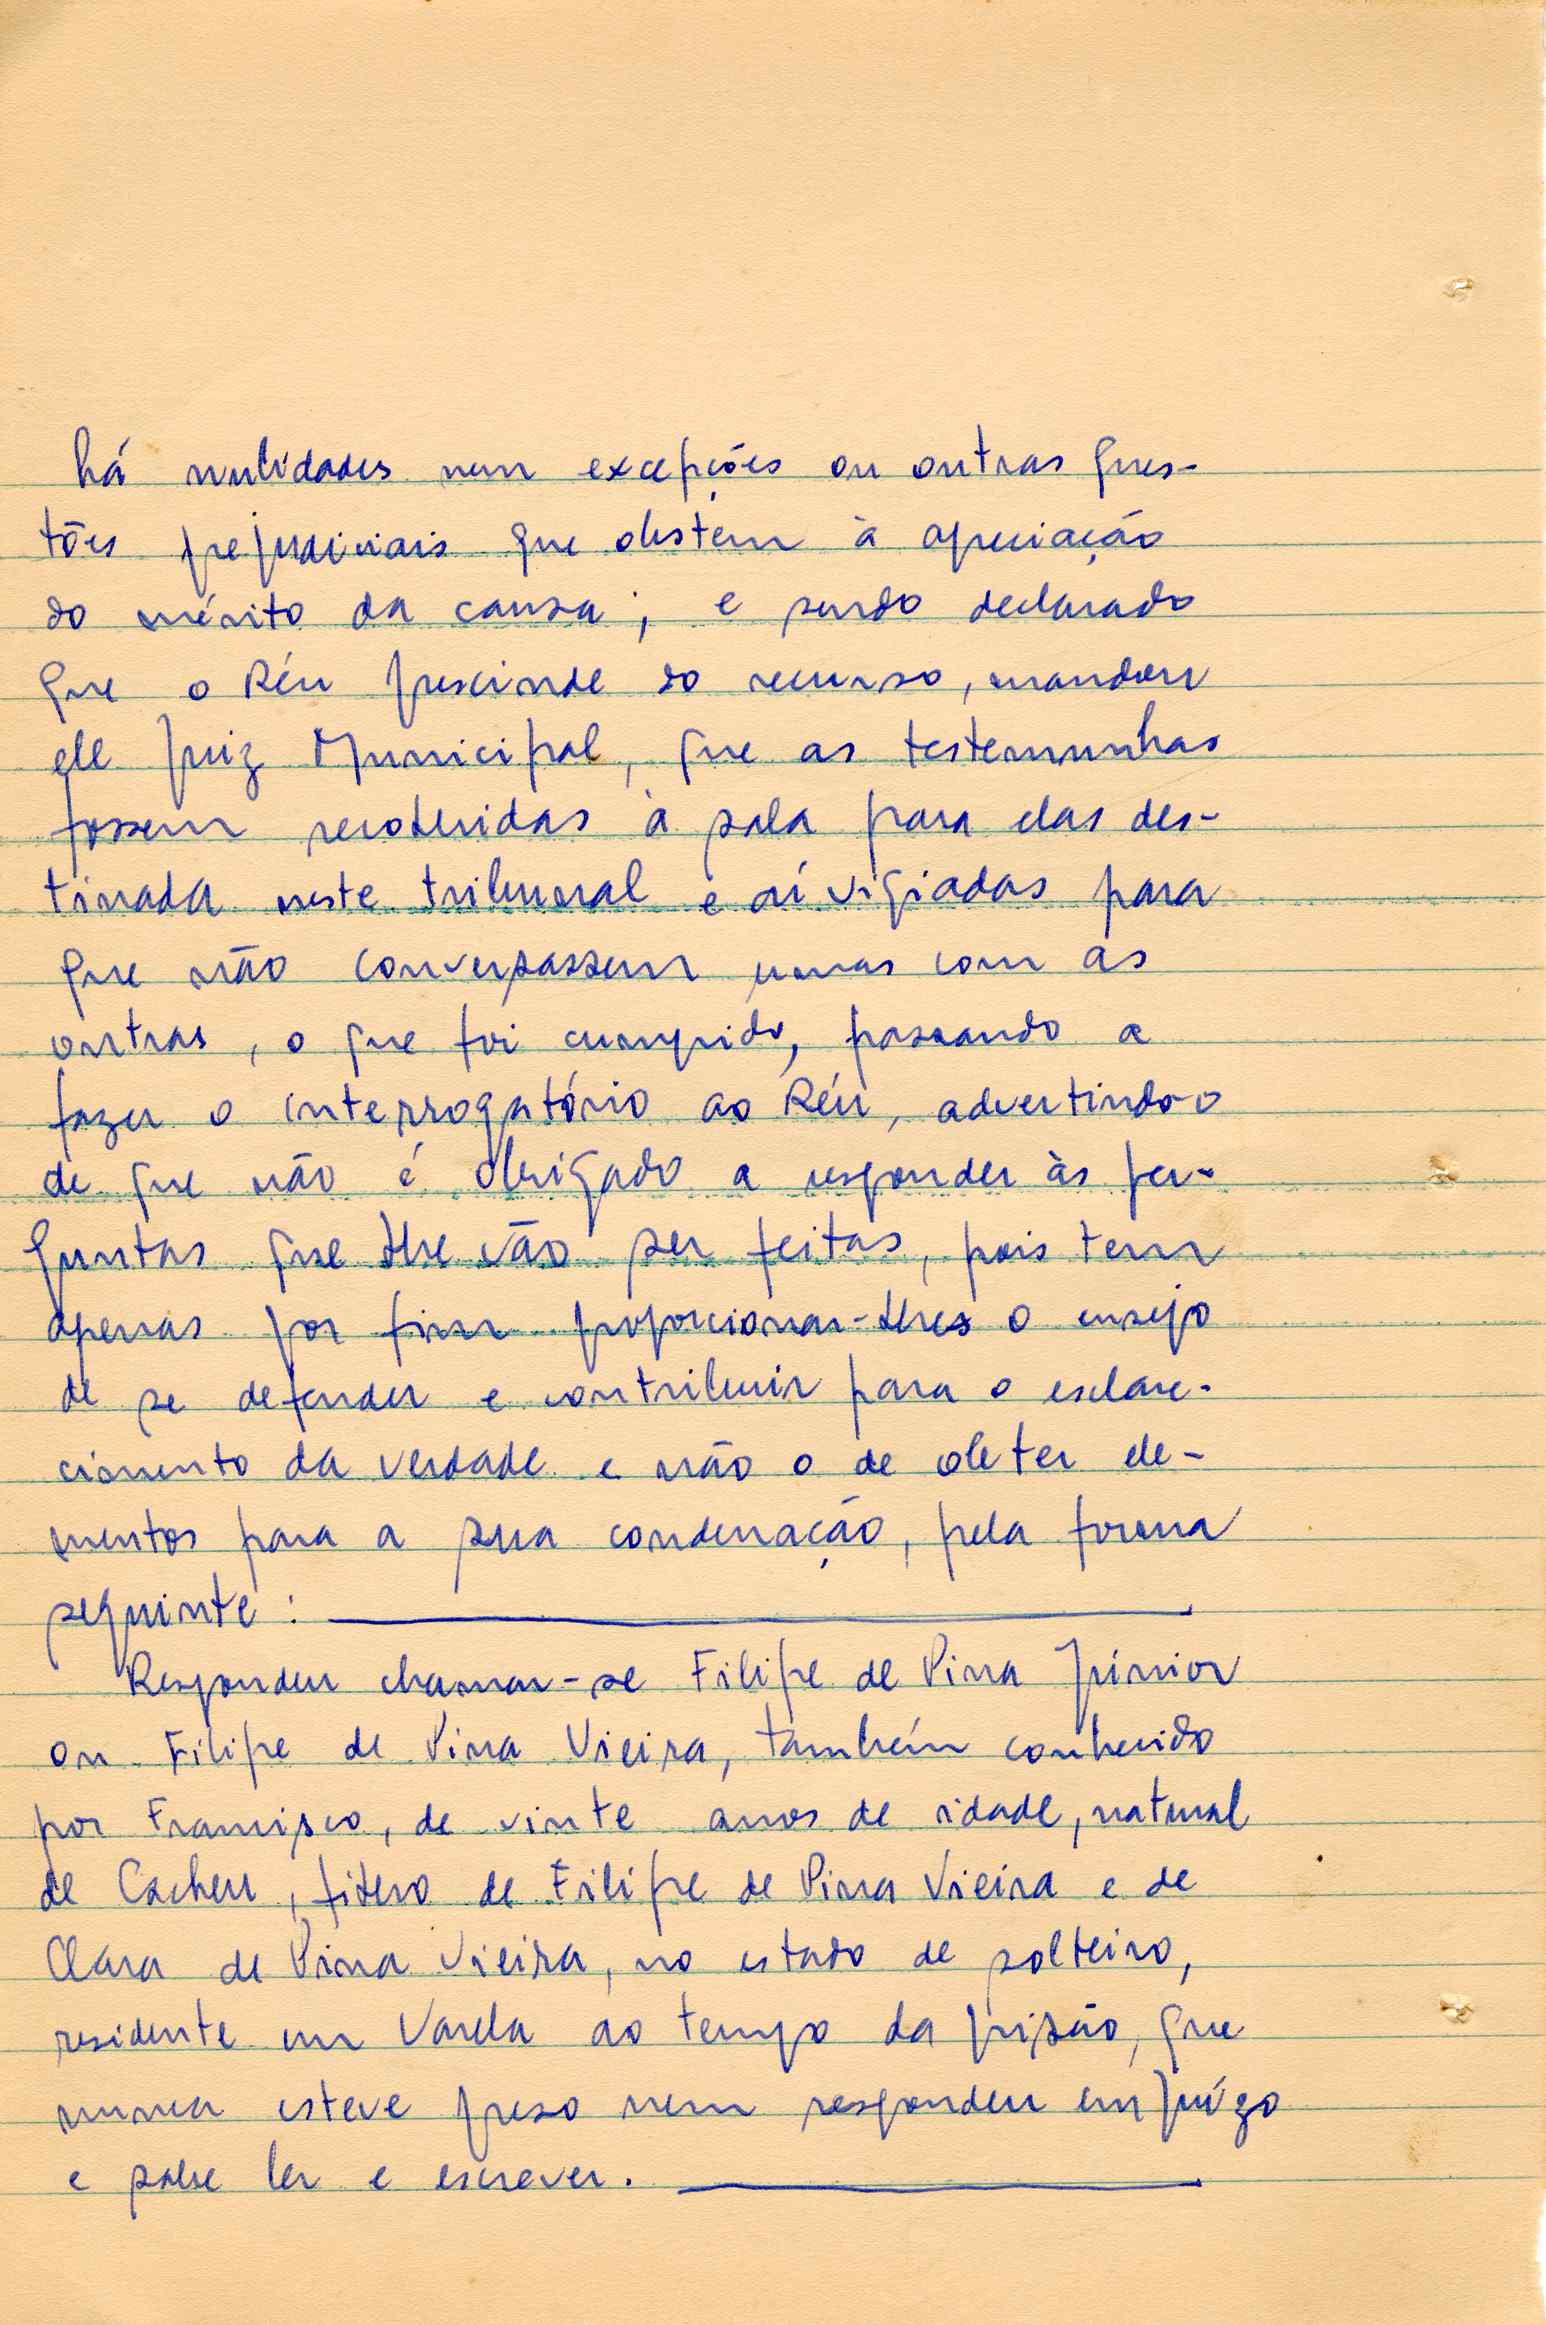 há nulidades nem excepções ou outras ques-
tões prejudiciais que obstem à apreciação
do mérito da causa; e sendo declarado
que o Réu prescinde do recurso, mandou
ele Juiz Municipal, que as testemunhas
fossem recolhidas à sala para elas des-
tinada neste tribunal e aí vigiadas para
que não conversassem umas com as
outras, o que foi cumprido, passando a
fazer o interrogatório ao Réu, advertindo-o
de que não é obrigado a responder às per-
guntas que lhe vão ser feitas, pois tem
apenas por fim proporcionar-lhes o ensejo
de se defender e contribuir para o esclare-
cimento da verdade e não o de obter ele-
mentos para a sua condenação, pela forma
seguinte:
Respondeu chamar-se Filipe de Pina Júnior
ou Filipe de Pina Vieira, também conhecido
por Francisco, de vinte anos de idade, natural
de Cacheu, filho de Filipe de Pina Vieira e de
Clara de Pina Vieira, no estado de solteiro,
residente em Varela ao tempo da prisão, que
nunca esteve preso nem respondeu em juízo
e sabe ler e escrever.